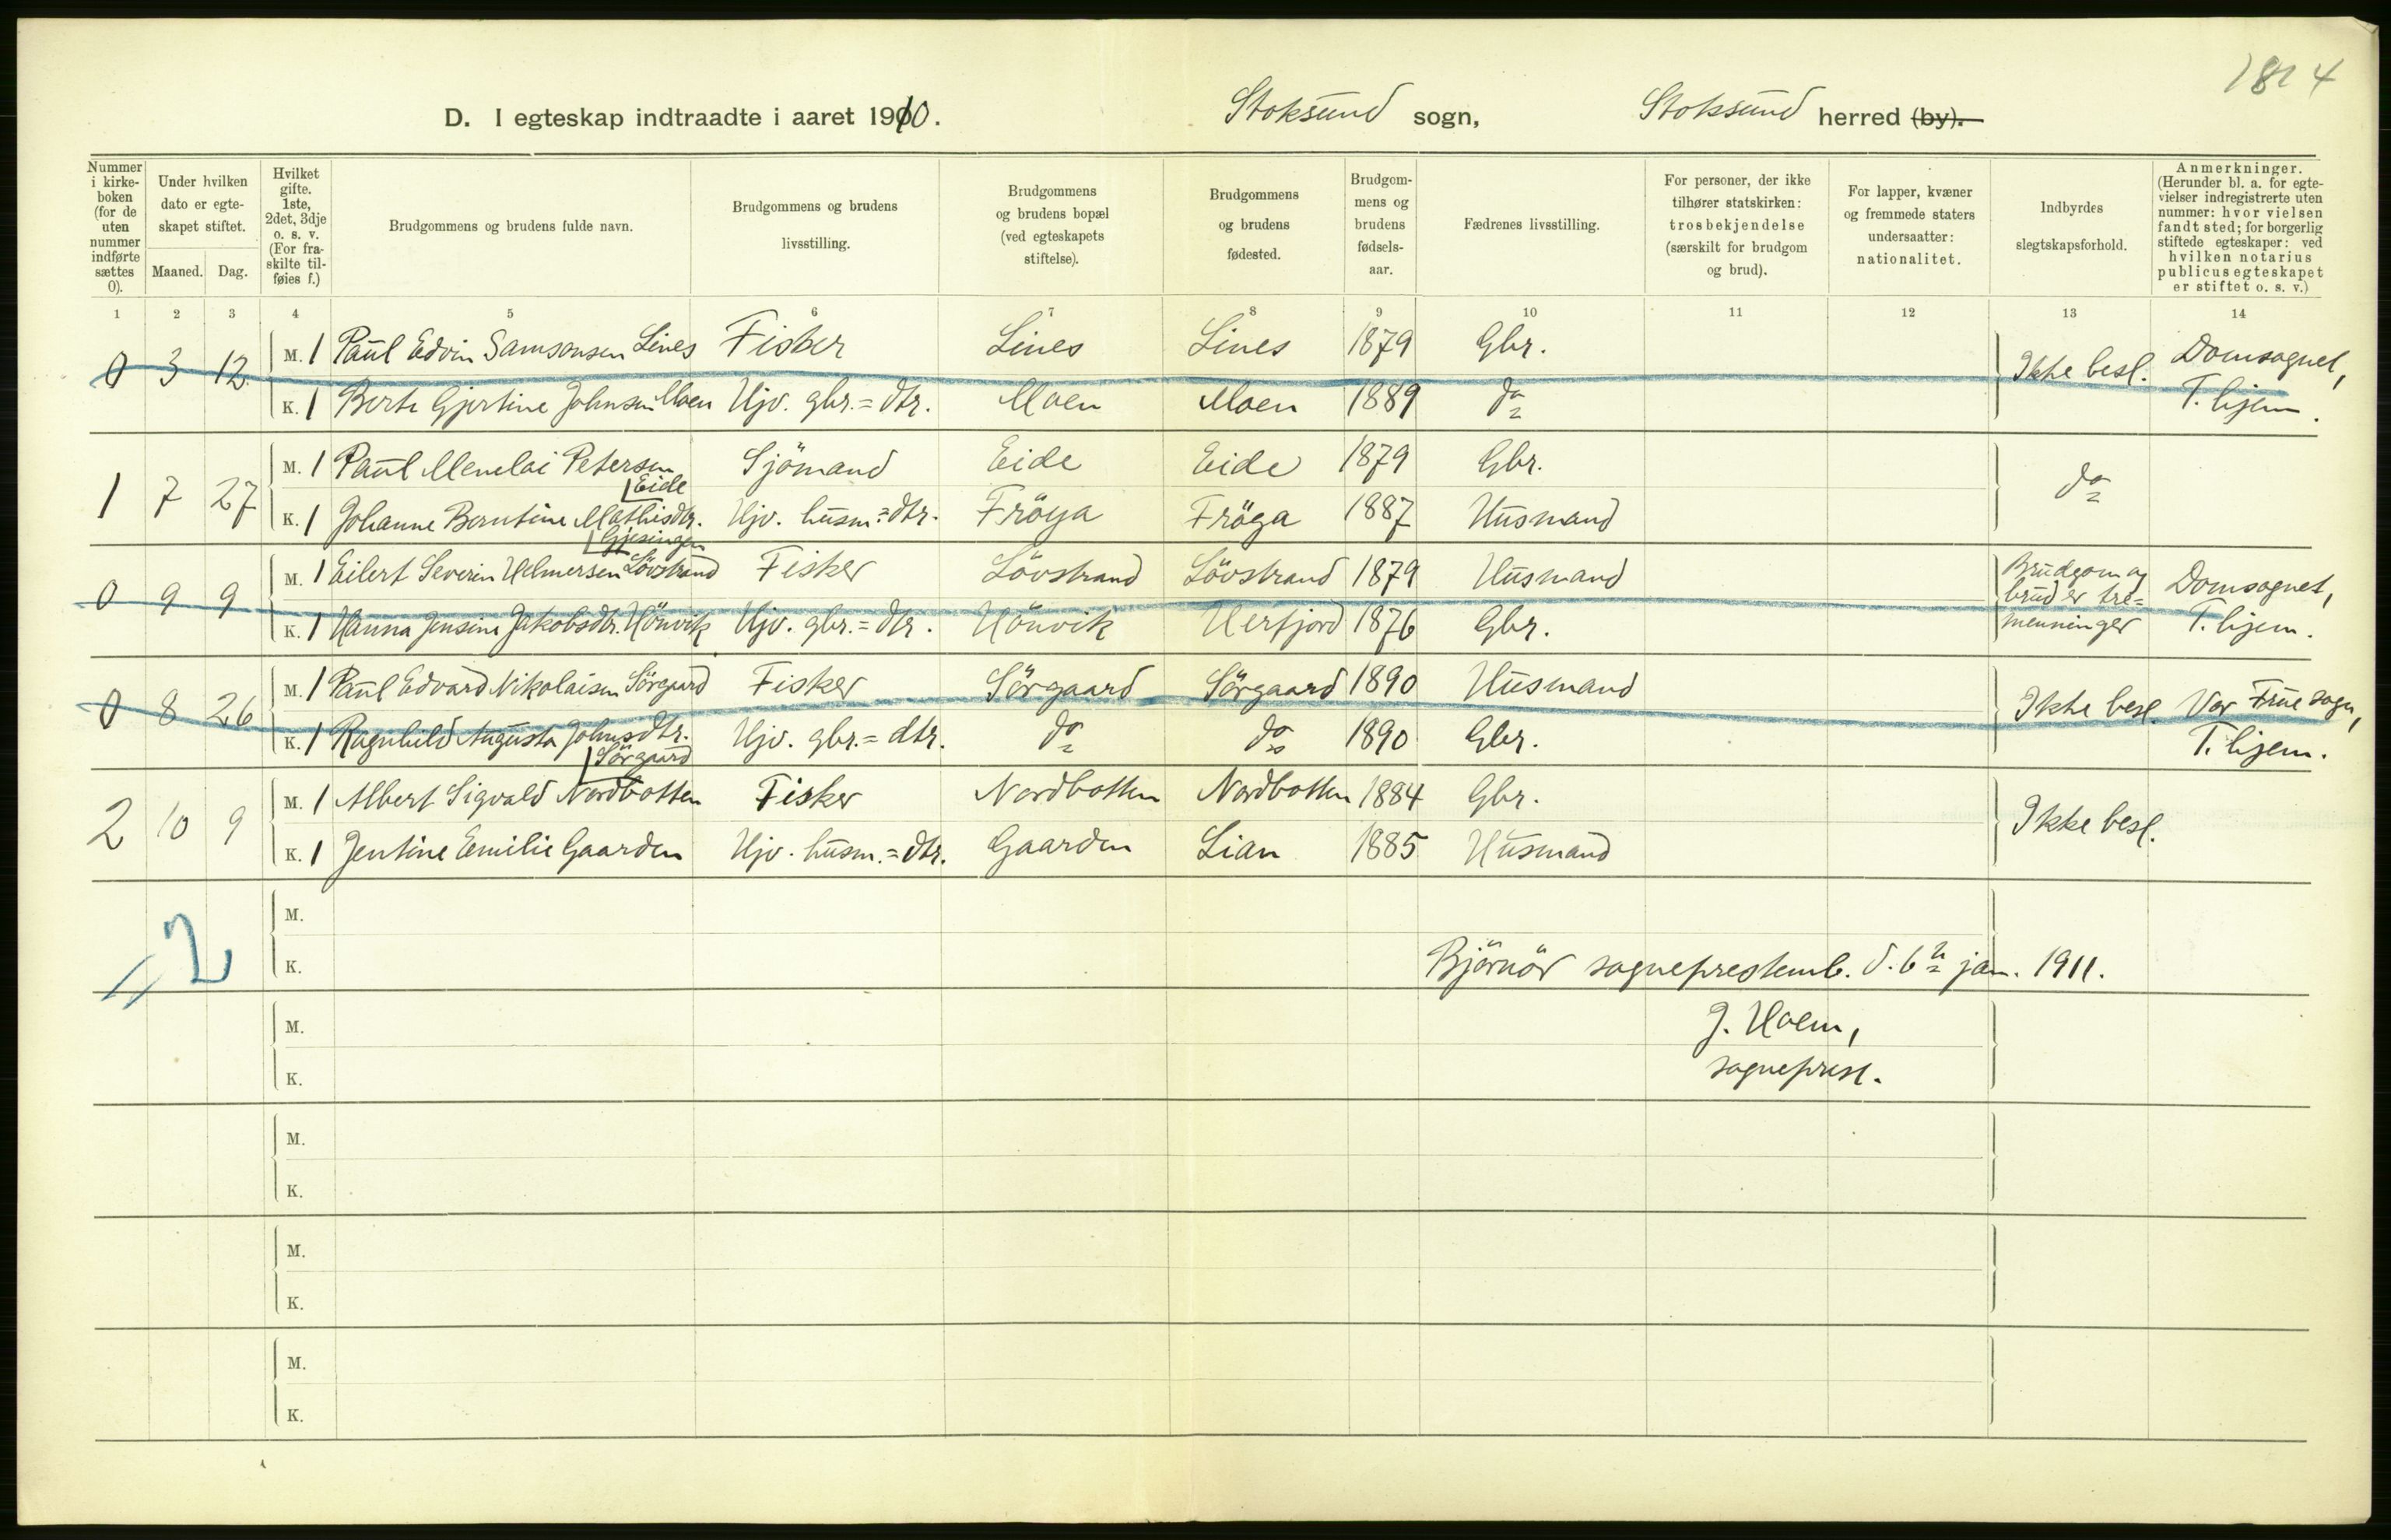 1814
D. I egteskap indtraadte i aaret 1910. Stoksund sogn, Stoksund herred (by).
Nummer i kirkeboken (for de uten nummer indførte sættes 0).
Under hvilken dato er egteskapet stiftet.
Maaned. Dag.
Hvilket gifte. 1ste, 2det, 3dje o. s. v. (For fraskilte tilføies f.)
Brudgommens og brudens fulde navn.
Brudgommens og brudens livsstilling.
Brudgommens og brudens bopæl (ved egteskapets stiftelse).
Brudgommens og brudens fødested.
Brudgommens og brudens fødselsaar.
Fædrenes livsstilling.
For personer, der ikke tilhører statskirken: trosbekjendelse (særskilt for brudgom og brud).
For lapper, kvæner og fremmede staters undersaatter: nationalitet.
Indbyrdes slegtskapsforhold.
Anmerkninger. (Herunder bl. a. for egtevielser indregistrerte uten nummer: hvor vielsen fandt sted; for borgerlig stiftede egteskaper: ved hvilken notarius publicus egteskapet er stiftet o. s. v.)
1 2 3 4 5 6 7 8 9 10 11 12 13 14
0 3 12 M. 1 Paul Edvin Samsonsen Lines Fisker Lines Lines 1879 Gbr. Ikke besl. Domsognet,
K. 1 Berte Gjertine Johnsen Moen Hjv. gbr.=dtr. Moen Moen 1889 do T.hjem.
1 7 27 M. 1 Paul Menelai Petersen Eide Sjömand Eide Eide 1879 Gbr. do
K. 1 Johanne Berntine Mathisdtr. Gjesingen Hjv. husm.=dtr. Fröya Fröya 1887 Husmand
0 9 9 M. 1 Eilert Severin Helmersen Lövstrand Fisker Lövstrand Lövstrand 1879 Husmand Brudgom og brud er tremenninger Domsognet,
K. 1 Hanna Jensine Jakobsdtr. Hönvik Hjv. gbr.=dtr. Hönvik Herfjord 1876 Gbr. T.hjem.
0 8 26 M. 1 Paul Edvard Nikolaisen Sörgaard Fisker Sörgaard Sörgaard 1890 Husmand Ikke besl. Vor Frue sogn,
K. 1 Ragnhild Augusta Johnsdtr. Sörgaard Hjv. gbr.=dtr. do do 1890 Gbr. T.hjem.
2 10 9 M. 1 Albert Sigvald Nordbotten Fisker Nordbotten Nordbotten 1884 Gbr. Ikke besl.
K. 1 Jentine Emilie Gaarden Hjv. husm.=dtr. Gaarden Lian 1885 Husmand
2
M.
K.
Björnör sogneprestemb. d. 6 jan. 1911.
M.
J. Holm,
K.
sogneprest.
M.
K.
M.
K.
M.
K.